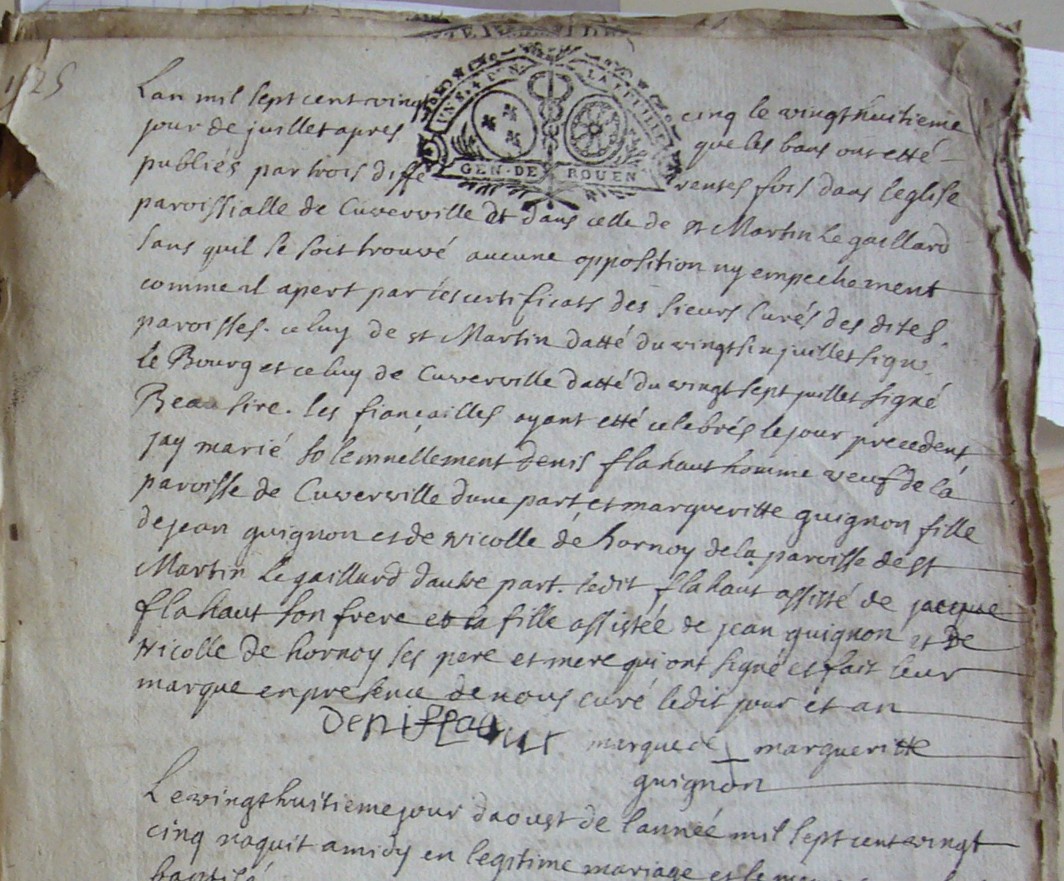 25
Lan mil sept cent vingt cinq le vingt huitieme
jour de juillet apres que les bans ont etté
publiés par trois diffe rentes fois dans leglise
GEN·DE ROUEN
paroissialle de Cuverville et dans celle de st Martin Le gaillard
sans quil se soit trouvé aucune opposition ny empechement
comme il apert par les certificats des sieurs Curés des dites
paroisses. celuy de st Martin datté du vingt six juillet signé
le Bourg et celuy de Cuverville datté du vingt sept juillet signé
Beausire. les fiançailles ayant etté celebrés le jour precedent
jay marié solemnellement denis flahaut homme veuf de la
paroisse de Cuverville dune part et margueritte guignon fille
de jean guignon et de Nicolle de hornoy de la paroisse de st
Martin Le gaillard dautre part. ledit flahaut assisté de jacque
flahaut son frere et la fille assistée de jean guignon et de
Nicolle de hornoy ses pere et mere qui ont signé et fait leur
marque en presence de nous curé ledit jour et an
marque de + margueritte
guignon
Le vingt huitieme jour daoust de lanneé mil sept cent vingt
cinq naquit a midy en legitime mariage et le
baptisé